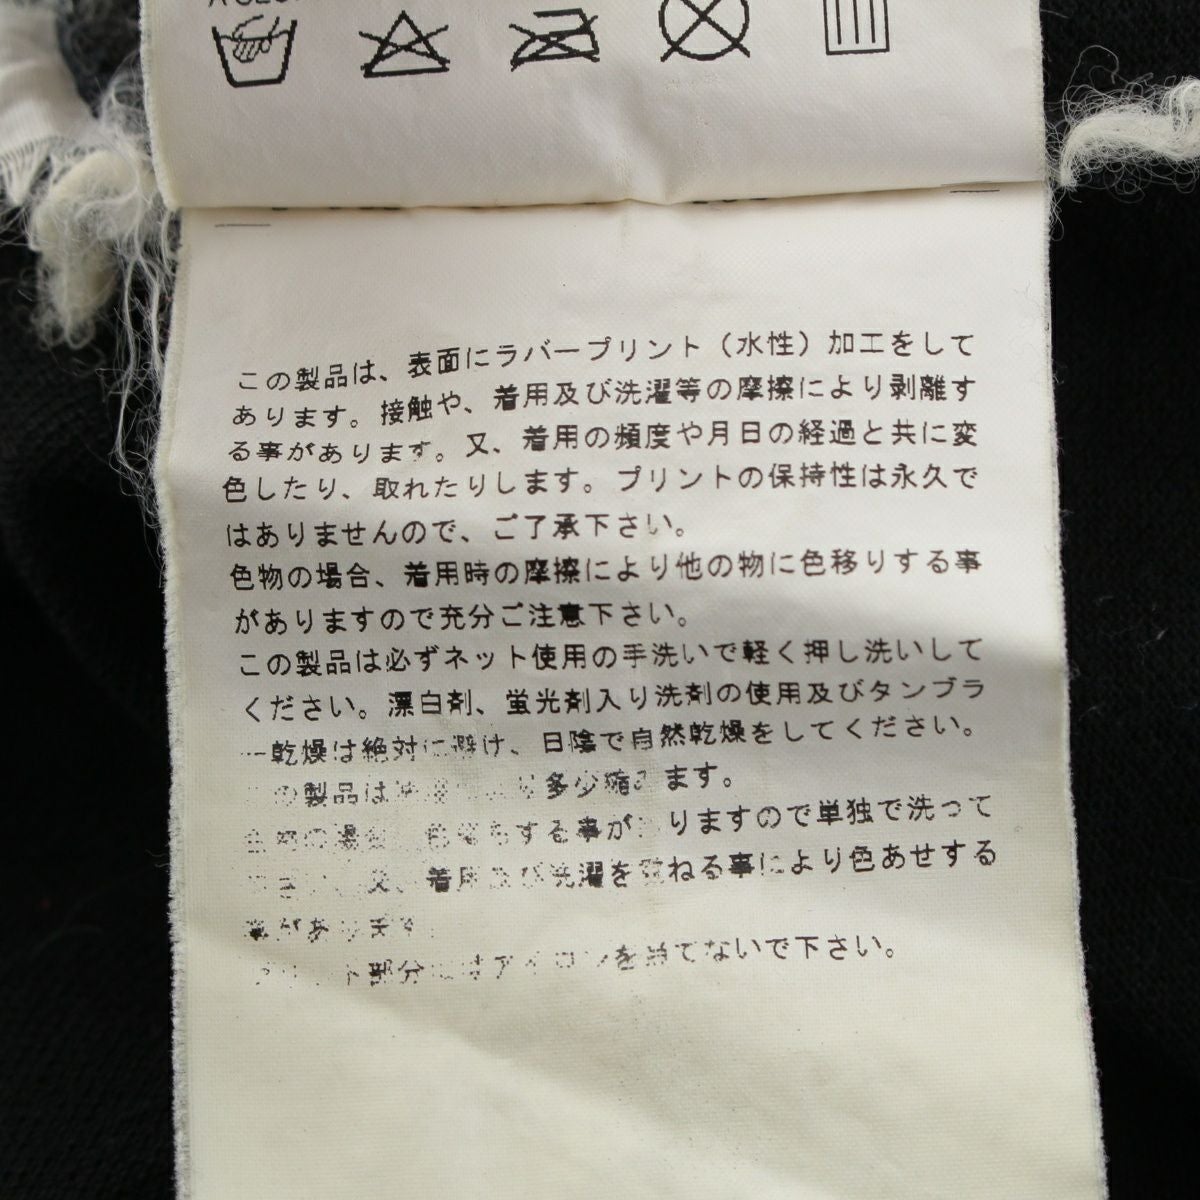 この製品は、表面にラバープリント（水性）加工をして
あります。接触や、着用及び洗濯等の摩擦により剥離す
る事があります。又、着用の頻度や月日の経過と共に変
色したり、取れたりします。プリントの保持性は永久で
はありませんので、ご了承下さい。
色物の場合、着用時の摩擦により他の物に色移りする事
がありますので充分ご注意下さい。
この製品は必ずネット使用の手洗いで軽く押し洗いして
ください。漂白剤、蛍光剤入り洗剤の使用及びタンブラ
ー乾燥は絶対に避け、日陰で自然乾燥をしてください。
の製品は り多少縮みます。
する事が りますので単独で洗って
又、着用及び洗濯を重ねる事により色あせする
事があります。
部分にはアイロンを当てないで下さい。